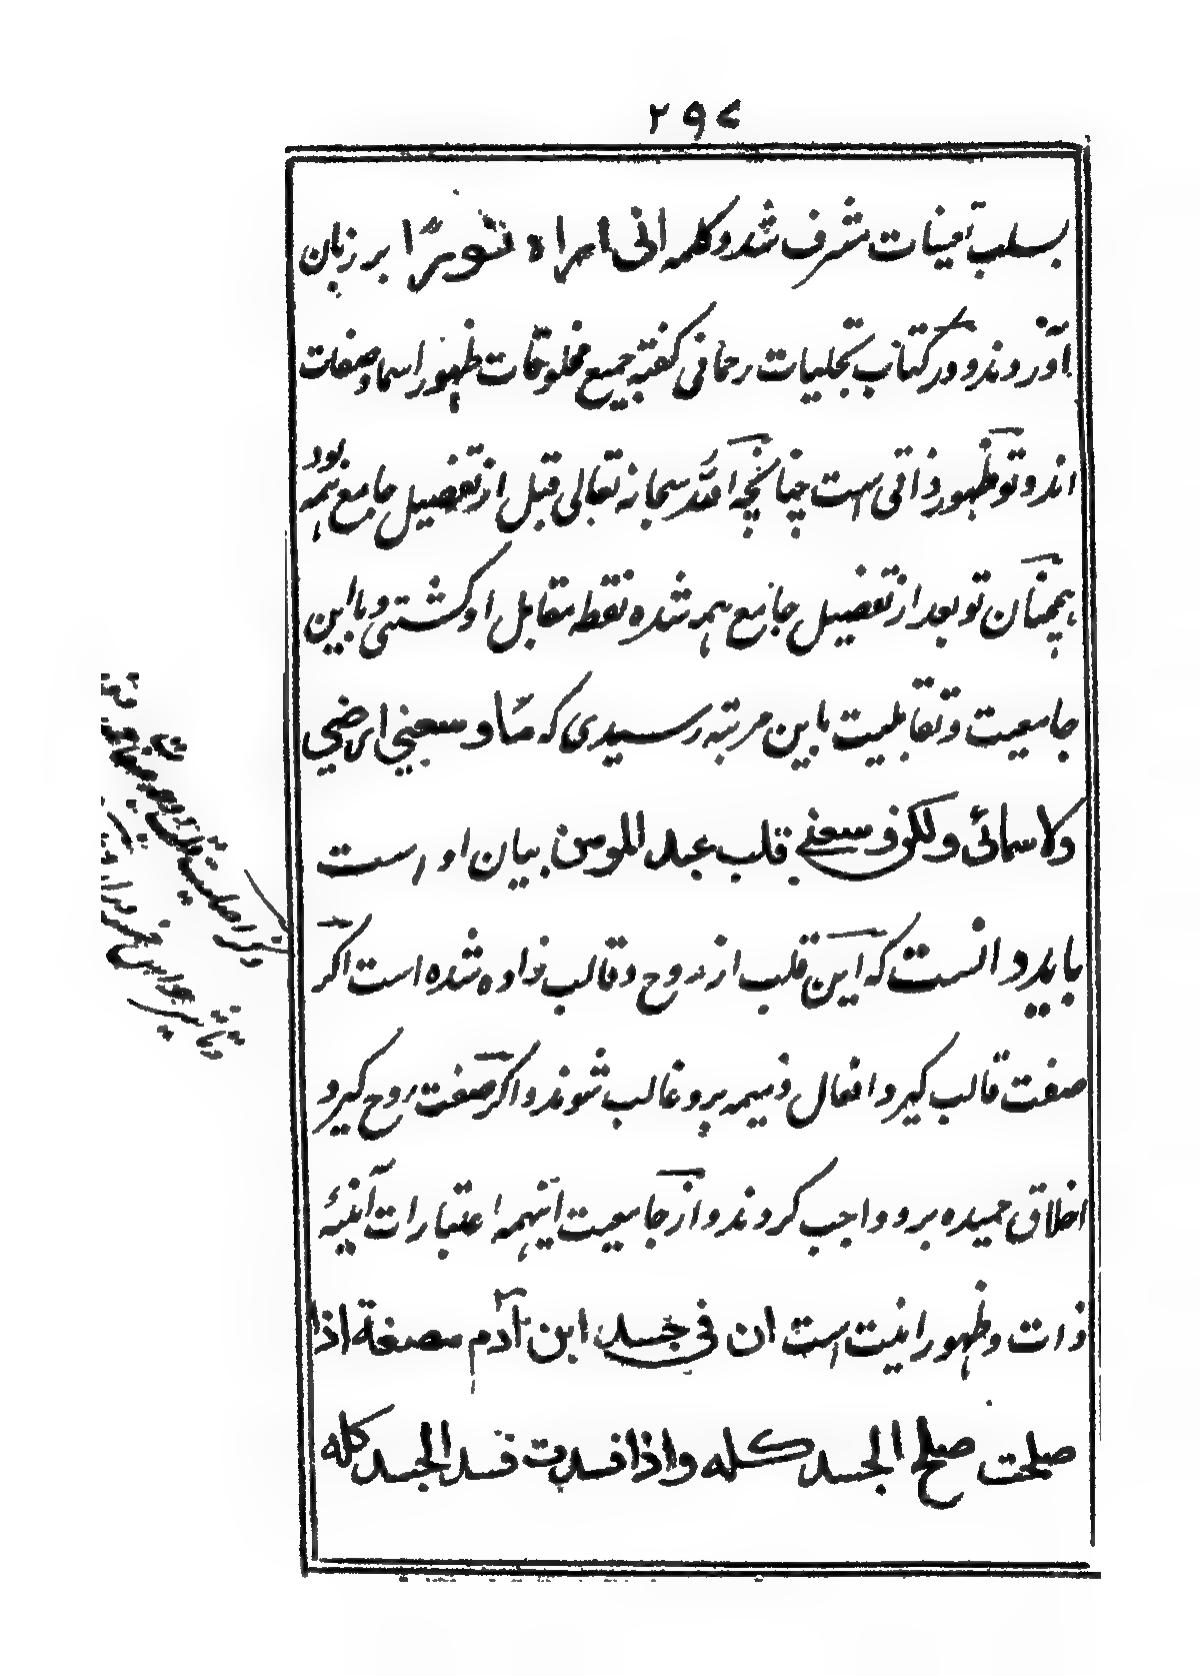 ۲۹۷
بسلب تعینات مشرف شد و کلمه انی اراه نورًا بر زبان
آوردند و در کتاب تجلیات رحمانی گفته جمیع مخلوقات ظهور اسما و صفات
اند و تو ظهور ذاتی است چنانچه الله سبحانه تعالی قبل از تفصیل جامع همه بود
همچنان تو بعد از تفصیل جامع همه شده نقطه مقابل او گشتی و با این
جامعیت و تقابلیت باین مرتبه رسیدی که ما وسعنی ارضی
ولا سمائی ولکن وسعنی قلب عبد المومن بیان او است
باید دانست که این قلب از روح و قالب زاده شده است اگر
صفت قالب گیرد افعال ذمیمه برو غالب شوند و اگر صفت روح گیرد
اخلاق حمیده برو واجب کردند و از جامعیت اینهمه اعتبارات آئینهٔ
ذات و ظهور انیت است ان فی جسد ابن آدم مضغة اذا
صلحت صلح الجسد کله واذا فسدت فسد الجسد کله